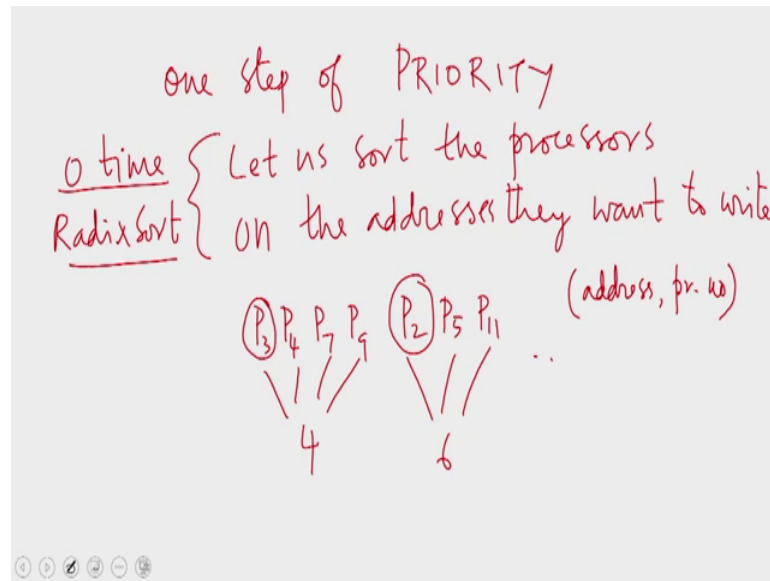 one step of PRIORITY
0 time { Let us sort the processors
Radix Sort { on the addresses they want to write
(address, pr. no)
P3 P4 P7 P9 P2 P5 P11 ..
4 6